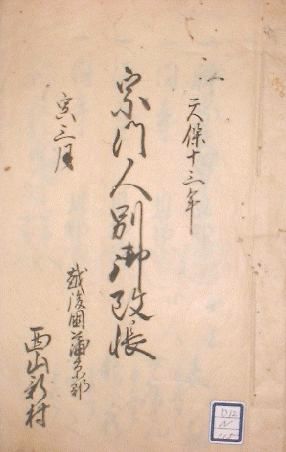 天保十三年
宗門人別御改帳
寅三月
越後国蒲原郡
西山新村
D12
N
115